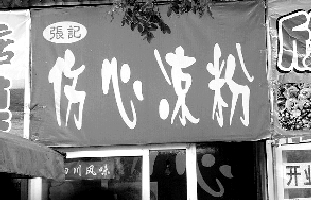 張記
伤心凉粉
四川风味
心
开业